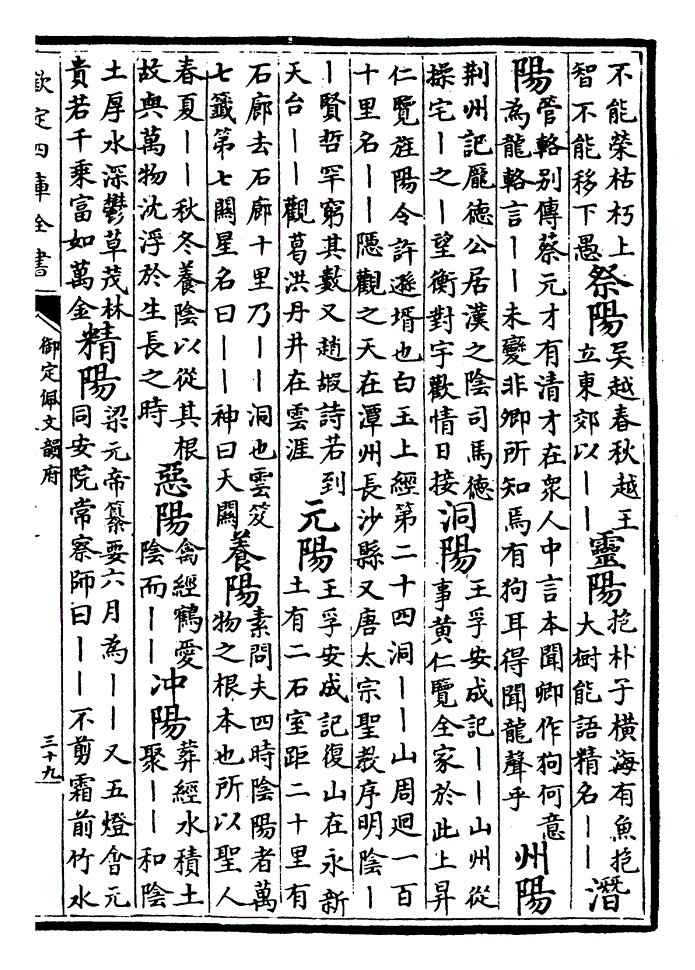 不能榮枯朽上
智不能移下愚
祭陽
吳越春秋越王
立東郊以——
靈陽
抱朴子橫海有魚抱
大樹能語精名——
潛
陽
管輅别傳蔡元才有清才在衆人中言本聞卿作狗何意
為龍輅言——未變非卿所知焉有狗耳得聞龍聲乎
州陽
荆州記龐德公居漢之陰司馬德
操宅—之—望衡對宇歡情日接
洞陽
王孚安成記——山州從
事黄仁覽全家於此上昇
仁覽旌陽令許遜壻也白玉上經第二十四洞——山周迴一百
十里名——隱觀之天在潭州長沙縣又唐太宗聖教序明陰—
—賢哲罕窮其數又趙嘏詩若到
天台——觀葛洪丹井在雲涯
元陽
王孚安成記復山在永新
土有二石室距二十里有
石廊去石廊十里乃——洞也雲笈
七籤第七闗星名曰——神曰天闗
養陽
素問夫四時陰陽者萬
物之根本也所以聖人
春夏——秋冬養陰以從其根
故與萬物沈浮於生長之時
惡陽
禽經鶴愛
陰而——
沖陽
葬經水積土
聚——和陰
土厚水深鬱草茂林
貴若千乘富如萬金
精陽
梁元帝纂要六月為——又五燈會元
同安院常察師曰——不剪霜前竹水
欽定四庫全書
御定佩文韻府
三十九